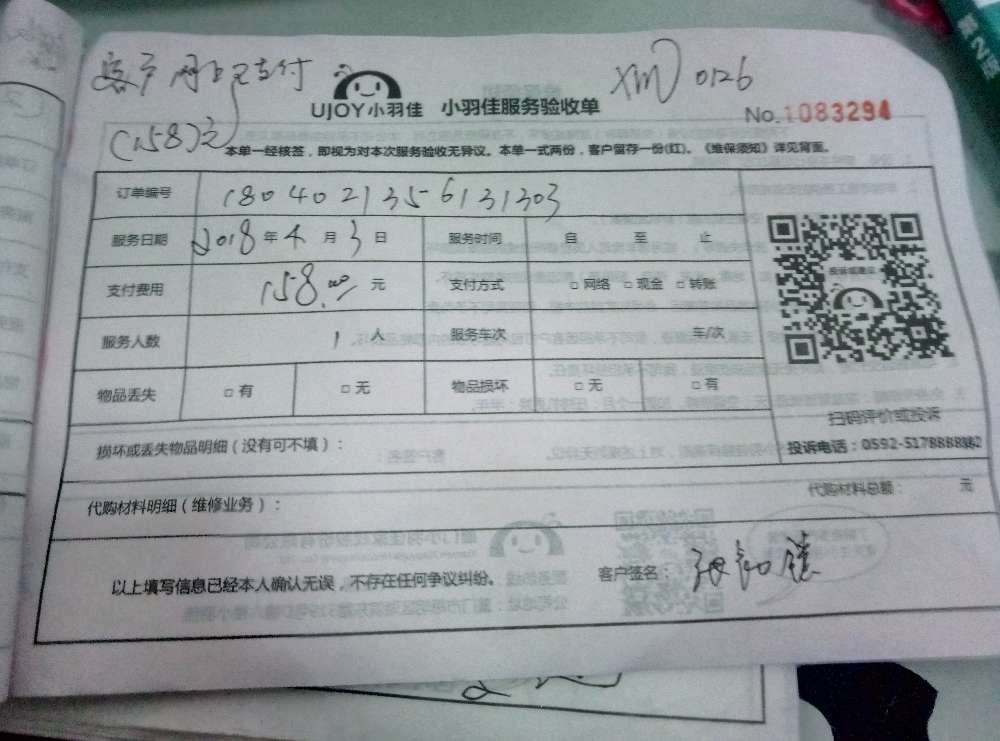 客户网上已支付
XM 0126
UJOY小羽佳 小羽佳服务验收单
No.1083294
(158)元
本单一经核签，即视为对本次服务验收无异议。本单一式两份，客户留存一份(红)。《维保须知》详见背面。
订单编号 1804021356131303
服务日期 2018年4月3日 服务时间 自 至 止
支付费用 158.00元 支付方式 □网络 □现金 □转账
投诉或建议
服务人数 1人 服务车次 车/次
物品丢失 □有 □无 物品损坏 □无 □有
扫码评价或投诉
损坏或丢失物品明细（没有可不填）：
投诉电话：0592-5178888
代购材料明细（维修业务）：
代购材料总额： 元
以上填写信息已经本人确认无误，不存在任何争议纠纷。 客户签名：